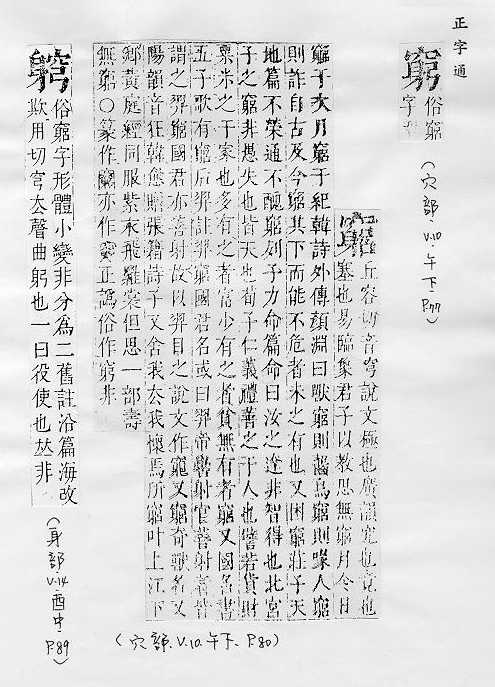 正字通
俗窮
字
(穴部. V.10. 午下. P.77)
竆
丘容切音穹說文極也廣韻究也竟也
塞也易臨象君子以教思無窮月令日
窮于次月窮于紀韓詩外傳顏淵曰獸窮則齧鳥窮則啄人窮
則詐自古及今窮其下而能不危者未之有也又困窮莊子天
地篇不榮通不醜窮列子力命篇命曰汝之達非智得也北宮
子之窮非愚失也皆天也荀子仁義禮善之于人也譬若貨財
粟米之于家也多有之者富少有之者貧無有者窮又國名書
五子歌有窮后羿註羿窮國君名或曰羿帝嚳射官善射者皆
謂之羿窮國君亦善射故以羿目之說文作竆又窮奇獸名又
陽韻音狂韓愈贈張籍詩子又舍我去我懷焉所窮叶上江下
鄉黃庭經同服紫衣飛羅裳但思一部壽
無窮○篆作亦作正譌俗作窮非
(穴部. V.10. 午下. P.80)
俗窮字形體小變非分為二舊註沿篇海改
欺用切穹去聲曲躬也一曰役使也𠀤非
(身部 V.14. 酉中. P.89)